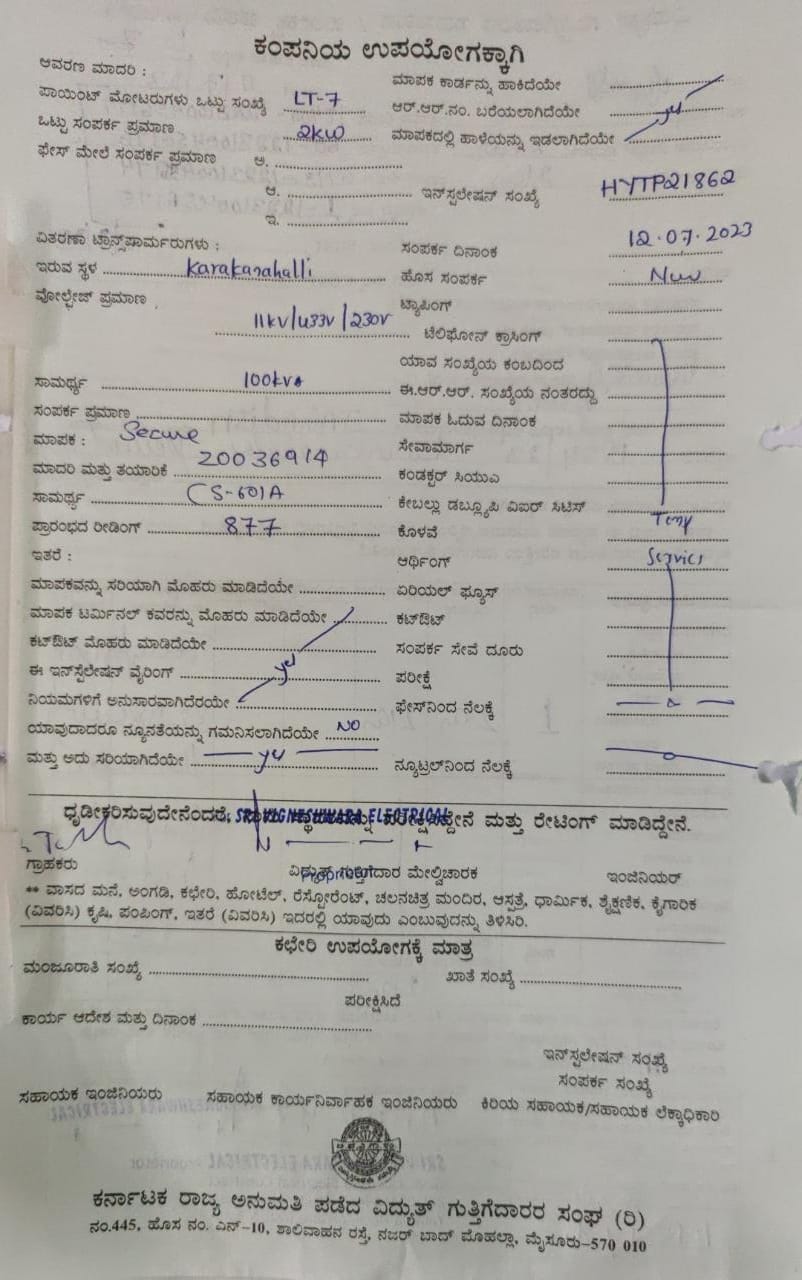 ಕಂಪನಿಯ ಉಪಯೋಗಕ್ಕಾಗಿ
ಆವರಣ ಮಾದರಿ :
ಮಾಪಕ ಕಾರ್ಡನ್ನು ಹಾಕಿದೆಯೇ
ಪಾಯಿಂಟ್ ಮೋಟರುಗಳು ಒಟ್ಟು ಸಂಖ್ಯೆ LT-7 ಆರ್.ಆರ್.ನಂ. ಬರೆಯಲಾಗಿದೆಯೇ yes
ಒಟ್ಟು ಸಂಪರ್ಕ ಪ್ರಮಾಣ 2KW ಮಾಪಕದಲ್ಲಿ ಹಾಳೆಯನ್ನು ಇಡಲಾಗಿದೆಯೇ
ಫೇಸ್ ಮೇಲೆ ಸಂಪರ್ಕ ಪ್ರಮಾಣ ಅ.
ಆ. ಇನ್‌ಸ್ಟಲೇಷನ್ ಸಂಖ್ಯೆ HYTP21862
ಇ.
ವಿತರಣಾ ಟ್ರಾನ್ಸ್‌ಪಾರ್ಮರುಗಳು : ಸಂಪರ್ಕ ದಿನಾಂಕ 12.07.2023
ಇರುವ ಸ್ಥಳ Karakanahalli ಹೊಸ ಸಂಪರ್ಕ New
ವೋಲ್ಟೇಜ್ ಪ್ರಮಾಣ ಟ್ಯಾಪಿಂಗ್
11kV/433V/230V ಟೆಲಿಫೋನ್ ಕ್ರಾಸಿಂಗ್
ಯಾವ ಸಂಖ್ಯೆಯ ಕಂಬದಿಂದ
ಸಾಮರ್ಥ್ಯ 100kva ಈ.ಆರ್.ಆರ್. ಸಂಖ್ಯೆಯ ನಂತರದ್ದು
ಸಂಪರ್ಕ ಪ್ರಮಾಣ ಮಾಪಕ ಓದುವ ದಿನಾಂಕ
ಮಾಪಕ : Secure ಸೇವಾಮಾರ್ಗ
ಮಾದರಿ ಮತ್ತು ತಯಾರಿಕೆ 20036914 ಕಂಡಕ್ಟರ್ ಸಿಯುಎ
ಸಾಮರ್ಥ್ಯ CS-601A ಕೇಬಲ್ಲು ಡಬ್ಲ್ಯೂಪಿ ವಿಐರ್ ಸಿಟಿಸ್
ಪ್ರಾರಂಭದ ರೀಡಿಂಗ್ 877 ಕೊಳವೆ Temp
ಇತರೆ : ಆರ್ಥಿಂಗ್ Service
ಮಾಪಕವನ್ನು ಸರಿಯಾಗಿ ಮೊಹರು ಮಾಡಿದೆಯೇ ಏರಿಯಲ್ ಫ್ಯೂಸ್
ಮಾಪಕ ಟರ್ಮಿನಲ್ ಕವರನ್ನು ಮೊಹರು ಮಾಡಿದೆಯೇ ಕಟ್‌ಔಟ್
ಕಟ್‌ಔಟ್ ಮೊಹರು ಮಾಡಿದೆಯೇ ಸಂಪರ್ಕ ಸೇವೆ ದೂರು
ಈ ಇನ್‌ಸ್ಟೆಲೇಷನ್ ವೈರಿಂಗ್ yes ಪರೀಕ್ಷೆ
ನಿಯಮಗಳಿಗೆ ಅನುಸಾರವಾಗಿದೆರಯೇ ಫೇಸ್‌ನಿಂದ ನೆಲಕ್ಕೆ
ಯಾವುದಾದರೂ ನ್ಯೂನತೆಯನ್ನು ಗಮನಿಸಲಾಗಿದೆಯೇ NO
ಮತ್ತು ಅದು ಸರಿಯಾಗಿದೆಯೇ yes ನ್ಯೂಟ್ರಲ್‌ನಿಂದ ನೆಲಕ್ಕೆ
ಧೃಡೀಕರಿಸುವುದೇನೆಂದರೆ, ಪರೀಕ್ಷಿಸಿದ್ದೇನೆ ಮತ್ತು ರೇಟಿಂಗ್ ಮಾಡಿದ್ದೇನೆ.
SRI VIGNESHWARA ELECTRICAL
ಗ್ರಾಹಕರು ವಿದ್ಯುತ್ ಗುತ್ತಿಗೆದಾರ ಮೇಲ್ವಿಚಾರಕ ಇಂಜಿನಿಯರ್
Proprietor
** ವಾಸದ ಮನೆ, ಅಂಗಡಿ, ಕಛೇರಿ, ಹೋಟೆಲ್, ರೆಸ್ಟೋರೆಂಟ್, ಚಲನಚಿತ್ರ ಮಂದಿರ, ಆಸ್ಪತ್ರೆ, ಧಾರ್ಮಿಕ, ಶೈಕ್ಷಣಿಕ, ಕೈಗಾರಿಕ
(ವಿವರಿಸಿ) ಕೃಷಿ, ಪಂಪಿಂಗ್, ಇತರೆ (ವಿವರಿಸಿ) ಇದರಲ್ಲಿ ಯಾವುದು ಎಂಬುವುದನ್ನು ತಿಳಿಸಿರಿ.
ಕಛೇರಿ ಉಪಯೋಗಕ್ಕೆ ಮಾತ್ರ
ಮಂಜೂರಾತಿ ಸಂಖ್ಯೆ ಖಾತೆ ಸಂಖ್ಯೆ
ಪರೀಕ್ಷಿಸಿದೆ
ಕಾರ್ಯ ಆದೇಶ ಮತ್ತು ದಿನಾಂಕ
ಇನ್‌ಸ್ಟಲೇಷನ್ ಸಂಖ್ಯೆ
ಸಂಪರ್ಕ ಸಂಖ್ಯೆ
ಸಹಾಯಕ ಇಂಜಿನಿಯರು ಸಹಾಯಕ ಕಾರ್ಯನಿರ್ವಾಹಕ ಇಂಜಿನಿಯರು ಕಿರಿಯ ಸಹಾಯಕ/ಸಹಾಯಕ ಲೆಕ್ಕಾಧಿಕಾರಿ
ಕರ್ನಾಟಕ ರಾಜ್ಯ ಅನುಮತಿ ಪಡೆದ ವಿದ್ಯುತ್ ಗುತ್ತಿಗೆದಾರರ ಸಂಘ (ರಿ)
ನಂ.445, ಹೊಸ ನಂ. ಎನ್-10, ಶಾಲಿವಾಹನ ರಸ್ತೆ, ನಜರ್ ಬಾದ್ ಮೊಹಲ್ಲಾ, ಮೈಸೂರು-570 010